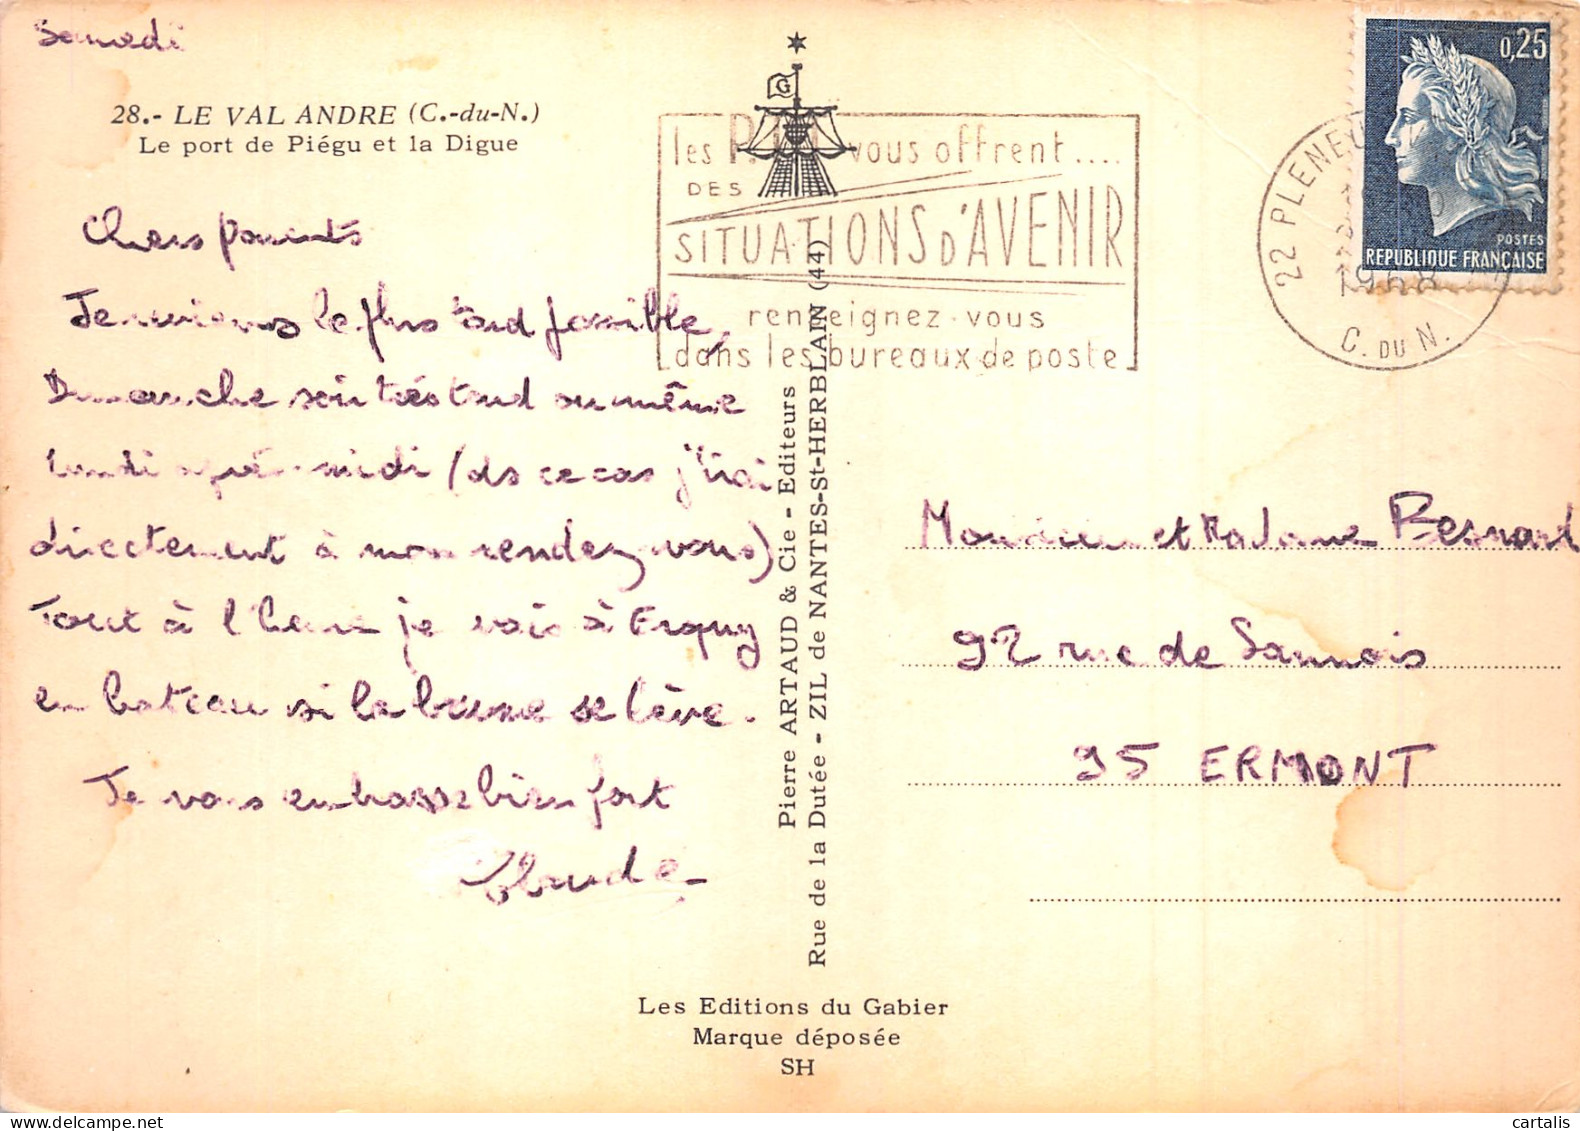 Samedi
28.- LE VAL ANDRE (C.-du-N.)
Le port de Piégu et la Digue
Chers parents
Je reviens le plus tard possible,
Dimanche soir très tard ou même
lundi après-midi (ds ce cas j'irai
directement à mon rendez-vous)
Tout à l'heure je vais à Erquy
en bateau si la brise se lève.
Je vous embrasse bien fort
Claude
G
les P.T.T vous offrent....
DES
SITUATIONS D'AVENIR
renseignez-vous
dans les bureaux de poste
22 PLENEU
1968
C. DU N.
0,25
POSTES
REPUBLIQUE FRANÇAISE
Pierre ARTAUD & Cie - Editeurs
Rue de la Dutée - ZIL de NANTES-St-HERBLAIN (44)
Monsieur et Madame Besnard
92 rue de Sannois
95 ERMONT
Les Editions du Gabier
Marque déposée
SH
cartalis